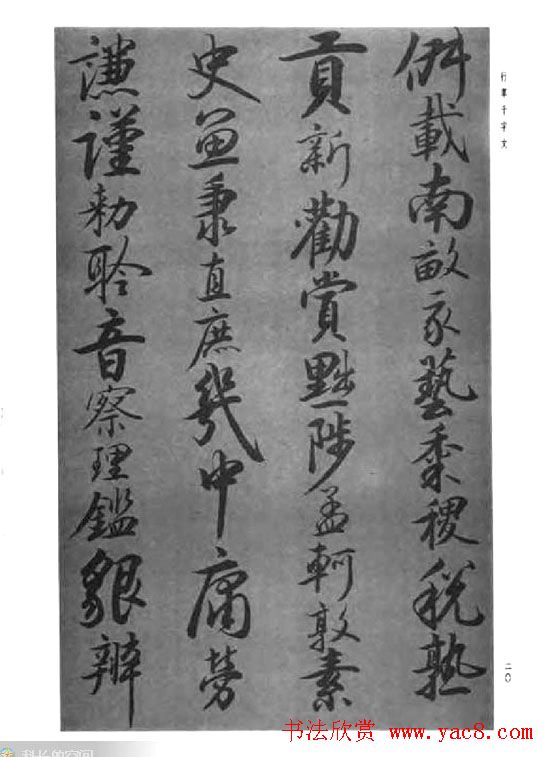 行草千字文
俶載南畝我藝黍稷稅熟
貢新勸賞黜陟孟軻敦素
史魚秉直庶幾中庸勞
謙謹勅聆音察理鑑貌辨
二〇
书法欣赏 www.yac8.com
科长的空间